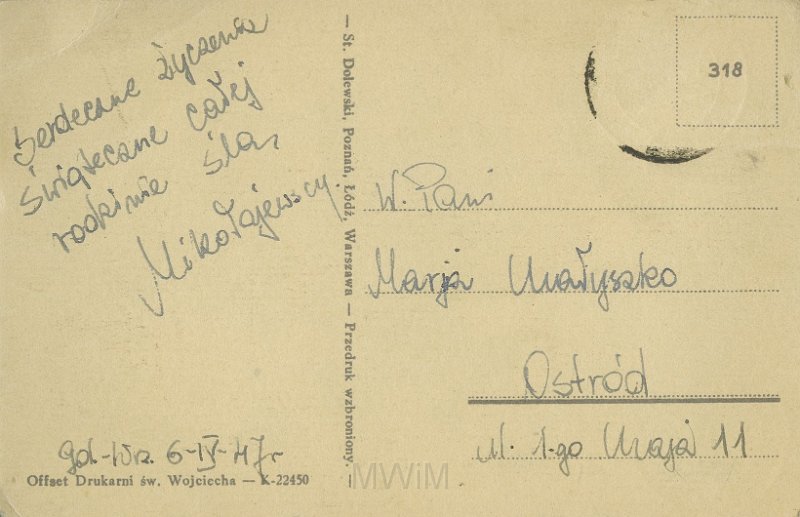 Serdeczne życzenia
świąteczne całej
rodzinie ślą
Mikołajewscy.
Gd.-Wrz. 6-IV-47r
Offset Drukarni św. Wojciecha — K-22450
— St. Dolewski, Poznań, Łódź, Warszawa — Przedruk wzbroniony. —
318
W. Pani
Marja Małyszko
Ostród
ul. 1-go Maja 11
MWiM